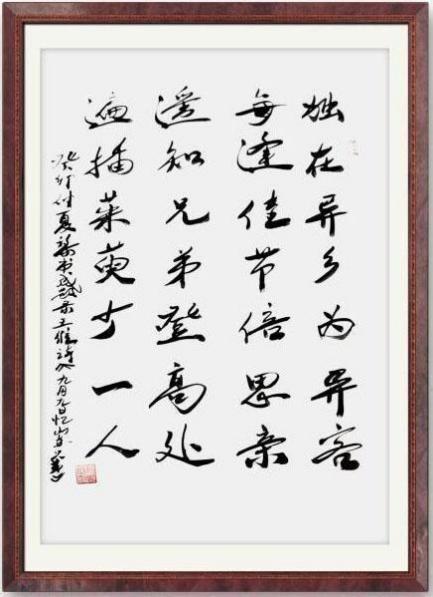 独在异乡为异客
每逢佳节倍思亲
遥知兄弟登高处
遍插茱萸少一人
癸卯仲夏录王维诗九月九日忆山东兄弟